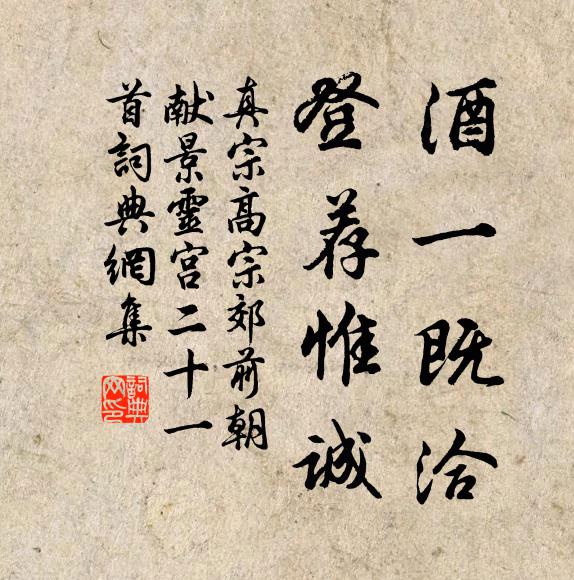 酒一既洽
登荐惟诚
真宗高宗郊前朝
献景靈宫二十一
首詞典網集
詞典
网印